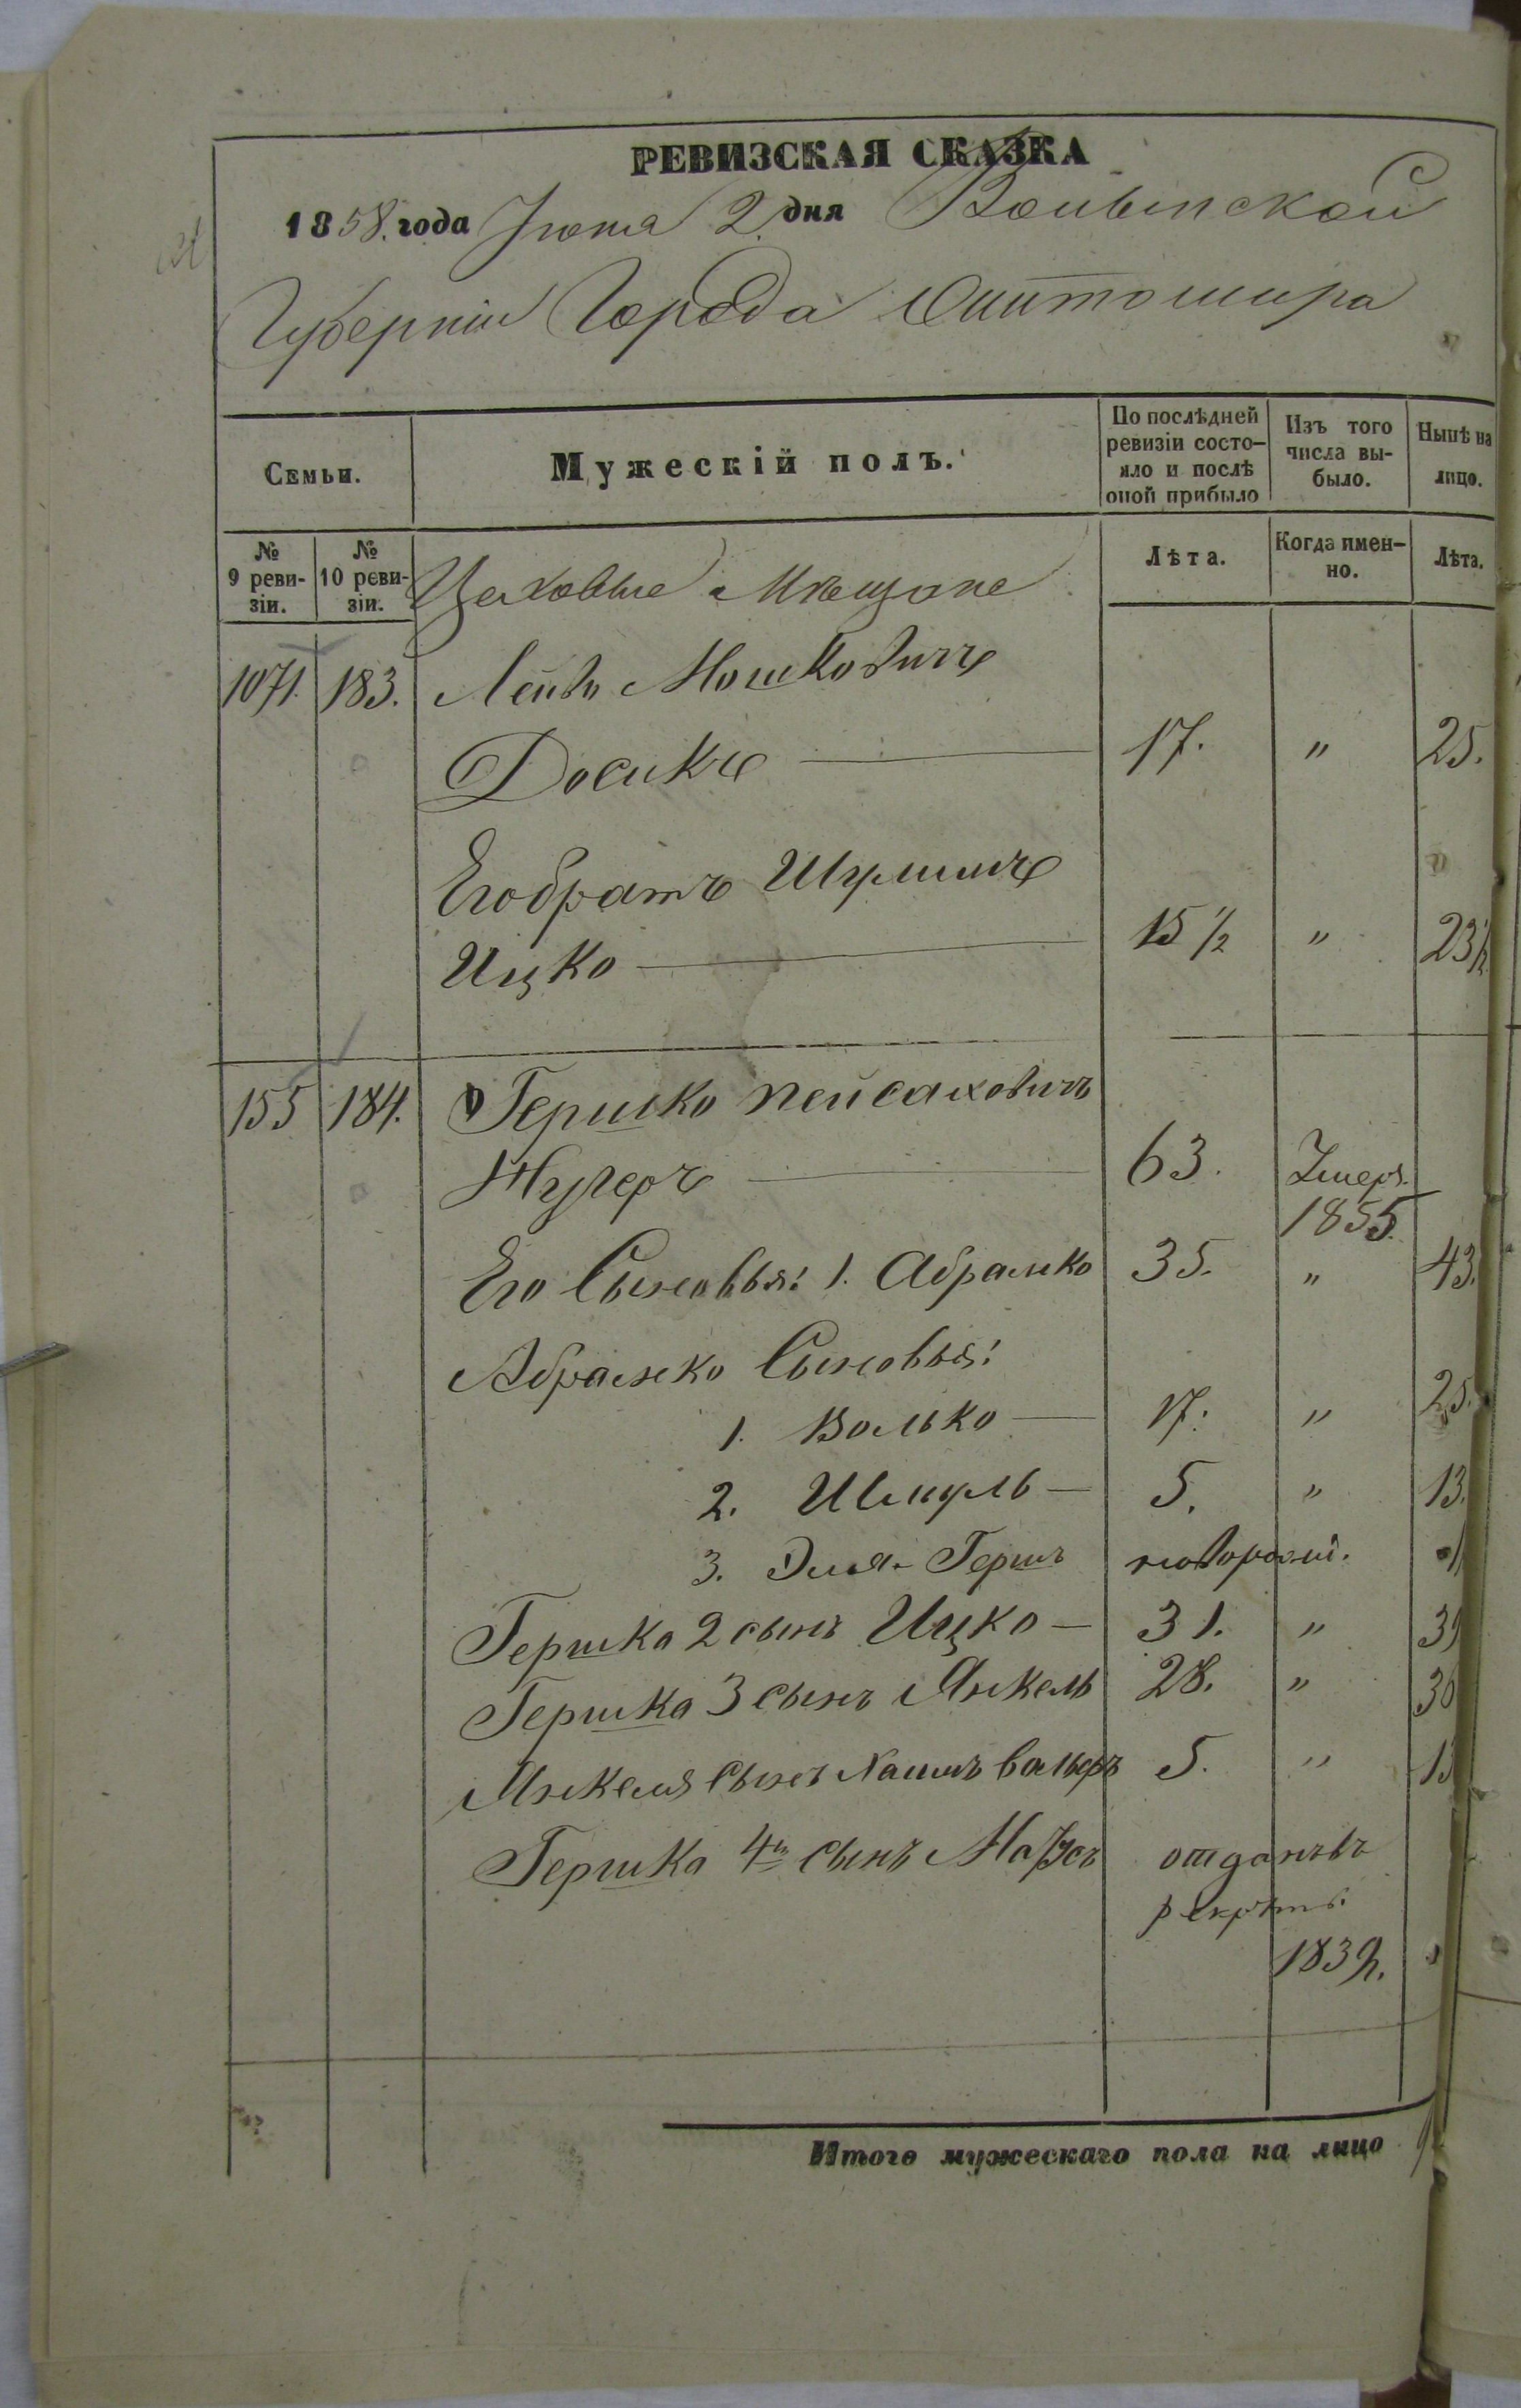 РЕВИЗСКАЯ СКАЗКА
1858. года Іюня 2. дня Волынской
Губерніи Города Житомира
Семьи.
Мужескій полъ.
По послѣдней ревизіи состо-
яло и послѣ
оной прибыло
Изъ того
числа вы-
было.
Нынѣ на
лицо.
№
9 реви-
зіи.
№
10 реви-
зіи.
Цеховые Мѣщане
Лѣта.
Когда имен-
но.
Лѣта.
1071. 183. Лейба Мошковичъ
Досикъ 17. " 25.
Его братъ Шулимъ
Ицко 15 1/2 " 23 1/2
155 184. Гершко Пейсаховичъ
63. Умеръ
1855.
Его Сыновья: 1. Абрамко 35. " 43.
Абрамко Сыновья:
1. Волько 17. " 25.
2. Шмуль 5. " 13.
3. Эля-Гершъ новорожд.
Гершка 2 сынъ Ицко 31. " 39
Гершка 3 сынъ Янкель 28. " 36
Янкеля Сынъ Хаимъ 5. " 13
Гершка 4й сынъ отданъ въ
рекруты
Итого мужескаго пола на лицо